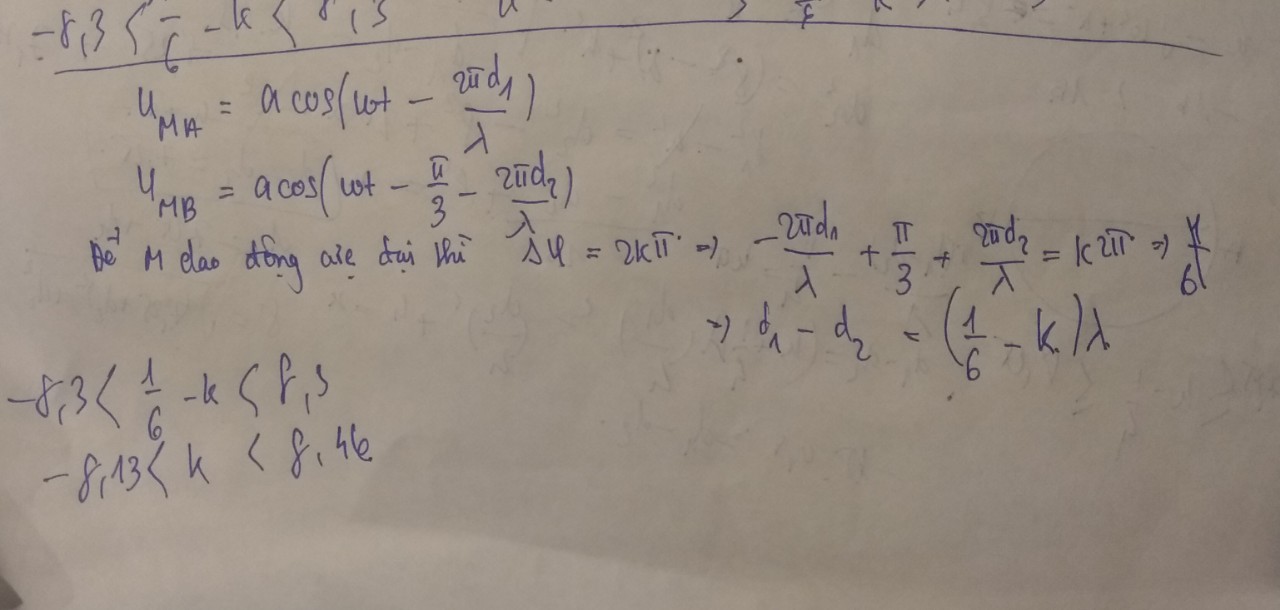 -8,3 < 1/6 - k < 8,3
u_MA = a cos(ωt - 2πd₁/λ)
u_MB = a cos(ωt - π/3 - 2πd₂/λ)
Để M dao động cực đại thì Δφ = 2kπ ⇒ -2πd₁/λ + π/3 + 2πd₂/λ = k2π ⇒
⇒ d₁ - d₂ = (1/6 - k)λ
-8,3 < 1/6 - k < 8,3
-8,13 < k < 8,46